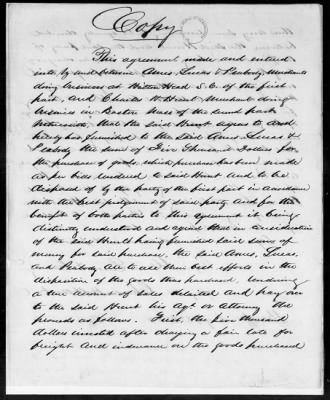 Copy
This agreement made and entered
into by and between Ames, Lucas & Peabody, Merchants
doing business at Hilton Head S.C. of the first
part, and Charles W. Brant Merchant doing
business in Boston Mass of the second part
Witnesseth, that the said Brant agrees to and
hereby has furnished to the said Ames, Lucas &
Peabody the sum of Five Thousand Dollars for
the purchase of goods, which purchase has been made
as per bills rendered to said Brant and to be
disposed of by the party of the first part in accordance
with the best judgment of said party and for the
benefit of both parties to this agreement it being
distinctly understood and agreed that in consideration
of the said having furnished said sum of
money for said purchase, the said Ames, Lucas,
and Peabody are to use their best efforts in the
disposition of the goods thus purchased, rendering
a true account of sales and pay over
to the said Brant his Agt. or Attorney the
proceeds as follows. First, the five thousand
dollars invested after charging a fair rate for
freight and insurance on the goods purchased